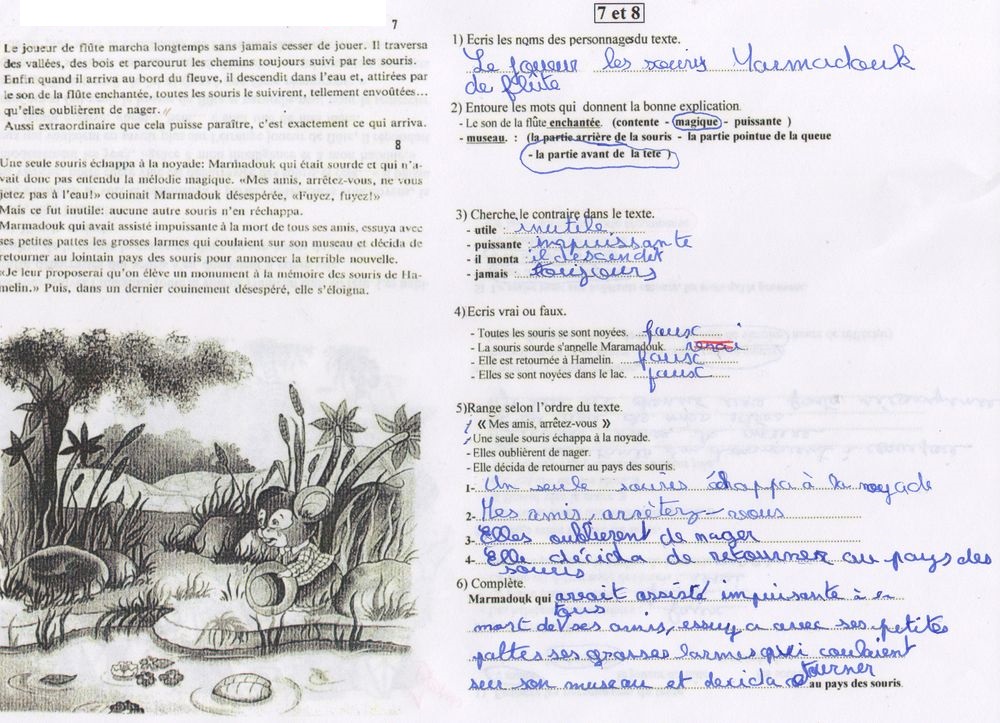 7
Le joueur de flûte marcha longtemps sans jamais cesser de jouer. Il traversa
des vallées, des bois et parcourut les chemins toujours suivi par les souris.
Enfin quand il arriva au bord du fleuve, il descendit dans l'eau et, attirées par
le son de la flûte enchantée, toutes les souris le suivirent, tellement envoûtées...
qu'elles oublièrent de nager.
Aussi extraordinaire que cela puisse paraître, c'est exactement ce qui arriva.
8
Une seule souris échappa à la noyade: Marmadouk qui était sourde et qui n'a-
vait donc pas entendu la mélodie magique. «Mes amis, arrêtez-vous, ne vous
jetez pas à l'eau!» couinait Marmadouk désespérée, «Fuyez, fuyez!»
Mais ce fut inutile: aucune autre souris n'en réchappa.
Marmadouk qui avait assisté impuissante à la mort de tous ses amis, essuya avec
ses petites pattes les grosses larmes qui coulaient sur son museau et décida de
retourner au lointain pays des souris pour annoncer la terrible nouvelle.
«Je leur proposerai qu'on élève un monument à la mémoire des souris de Ha-
melin.» Puis, dans un dernier couinement désespéré, elle s'éloigna.
7 et 8
1) Ecris les noms des personnages du texte.
Le joueur les souris Marmadouk
de flûte
2) Entoure les mots qui donnent la bonne explication.
- Le son de la flûte enchantée. (contente - magique - puissante )
- museau. : (la partie arrière de la souris - la partie pointue de la queue
- la partie avant de la tête )
3) Cherche le contraire dans le texte.
- utile : inutile
- puissante : impuissante
- il monta : il descendit
- jamais : toujours
4)Ecris vrai ou faux.
- Toutes les souris se sont noyées. faux
- La souris sourde s'appelle Maramadouk. vrai
- Elle est retournée à Hamelin. faux
- Elles se sont noyées dans le lac. faux
5)Range selon l'ordre du texte.
« Mes amis, arrêtez-vous »
Une seule souris échappa à la noyade.
- Elles oublièrent de nager.
- Elle décida de retourner au pays des souris.
1- Un seule soures échappa à la noyade
2- Mes amis arrêtez-vous
3- Elles oublierent de mager
4- Elle décida de retourner au pays des
souris
6) Complète.
Marmadouk qui avait assisté impuisante à la
tous
mort de ses amis, essuya avec ses petites
pattes ses grosses larmes qui coulaient
sur son museau et decida retourner au pays des souris.